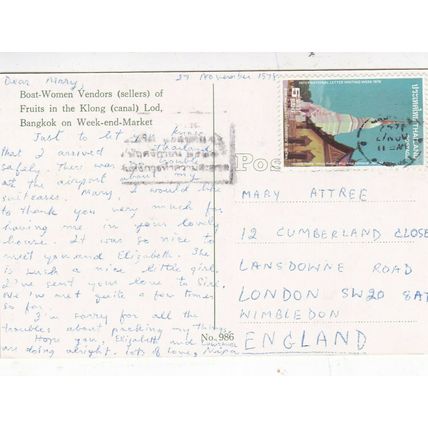 Dear Mary,
27 November 1978
Boat-Women Vendors (sellers) of
Fruits in the Klong (canal) Lod,
Bangkok on Week-end-Market
Just to let you know
that I arrived Thailand
safely. There was trouble
at the airport about my
suitcases. Mary, I would like
to thank you very much for
having me in your lovely
house. It was so nice to
meet you and Elizabeth. She
is such a nice little girl.
I've sent your love to Siri.
We've met quite a few times
so far.
I'm sorry for all the
troubles about packing my things
Hope you, Elizabeth and Lawrence
are doing alright. Lots of love,
No. 986
Post
INTERNATIONAL LETTER WRITING WEEK 1978
ประเทศไทย THAILAND
MARY ATTREE
12 CUMBERLAND CLOSE
LANSDOWNE ROAD
LONDON SW20 8AT
WIMBLEDON
ENGLAND